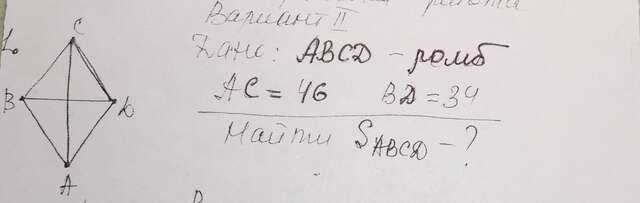 Вариант II
1.
Дано: ABCD - ромб
AC = 46 BD = 34
Найти S ABCD - ?
C
B
D
A